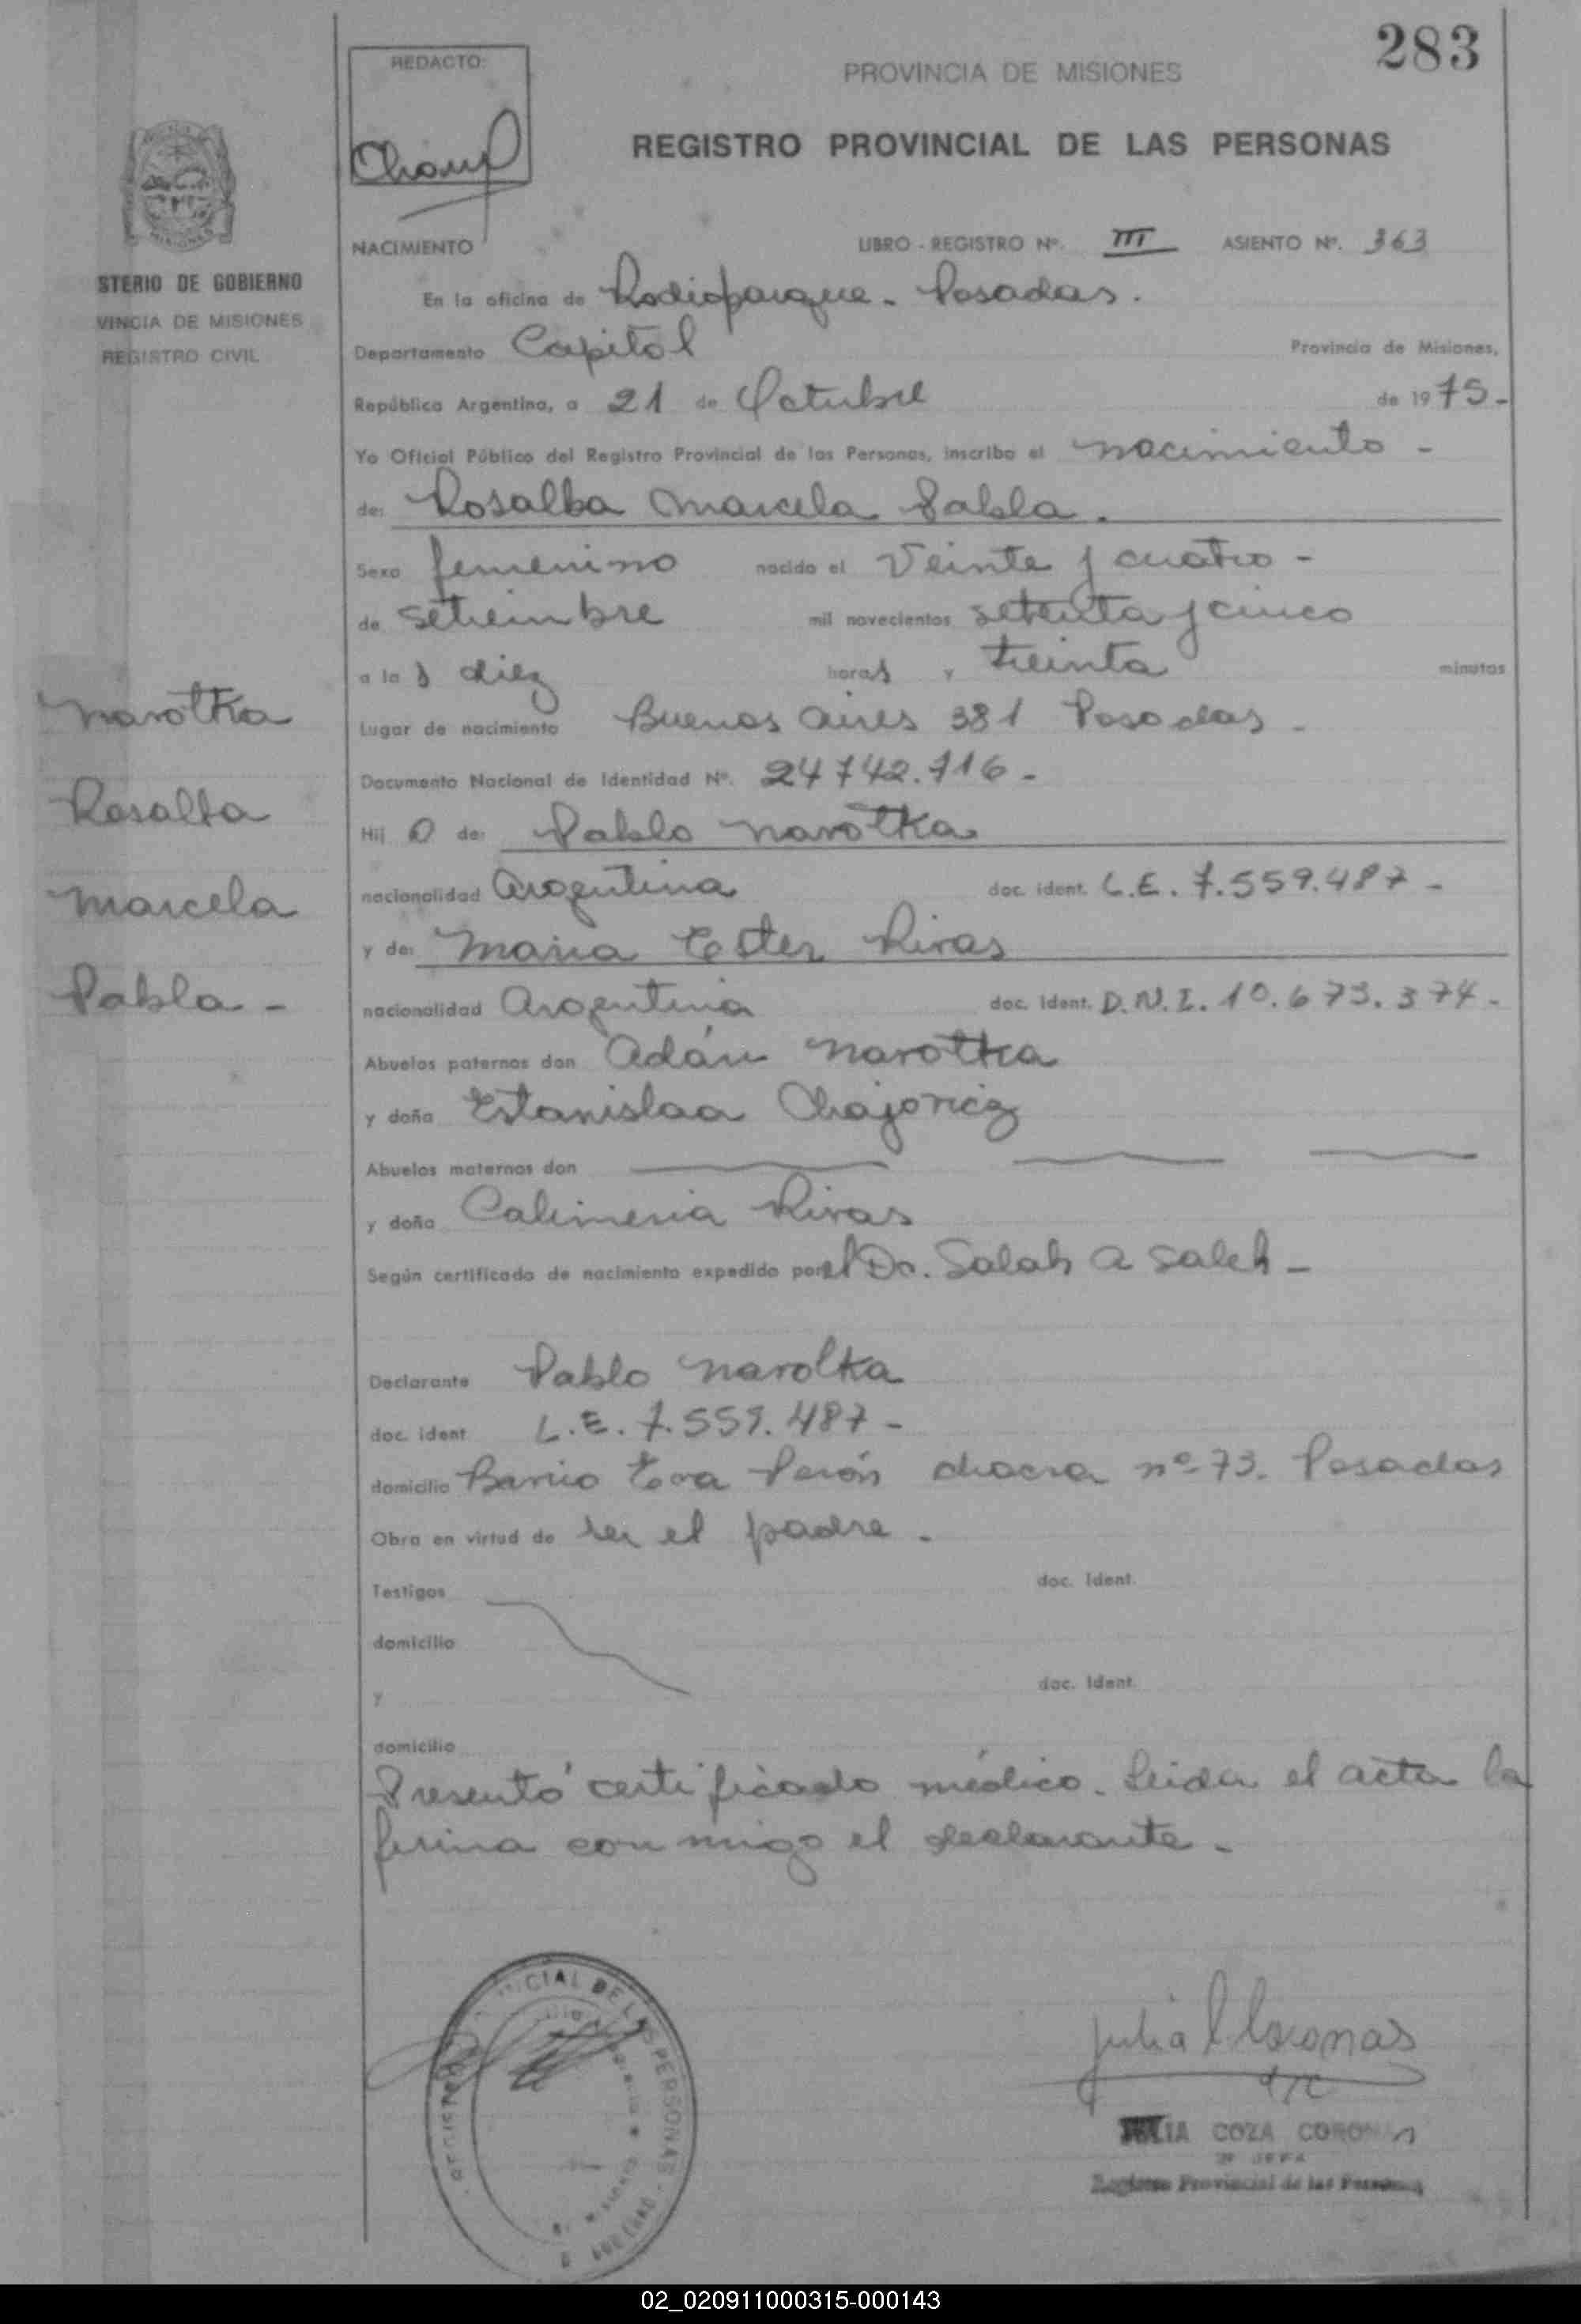 283
REDACTO:
PROVINCIA DE MISIONES
REGISTRO PROVINCIAL DE LAS PERSONAS
NACIMIENTO LIBRO - REGISTRO Nº. III ASIENTO Nº. 363
STERIO DE GOBIERNO
VINCIA DE MISIONES
REGISTRO CIVIL
En la oficina de Rodioparque - Posadas.
Departamento Capital Provincia de Misiones,
República Argentina, a 21 de Octubre de 1975-
Yo Oficial Público del Registro Provincial de las Personas, inscribo el nacimiento -
de: Rosalba Marcela Pabla.
Sexo femenino nacido el Veinte y cuatro -
de setiembre mil novecientos setenta y cinco
a las diez horas y treinta minutos
Lugar de nacimiento Buenos Aires 381 Posadas -
Documento Nacional de Identidad Nº. 24742.716-
Hija de: Pablo Narotka
nacionalidad Argentina doc. ident. L.E. 7.559.487-
y de: Maria Ester Rivas
nacionalidad Argentina doc. ident. D.N.I. 10.673.374-
Abuelos paternos don Adán Narotka
y doña Estanislaa Chajovicz
Abuelos maternos don
y doña Calimeria Rivas
Según certificado de nacimiento expedido por el Dr. Salah A Saleh -
Declarante Pablo Narotka
doc. ident L.E. 7.559.487-
domicilio Barrio Eva Perón chacra nº 73. Posadas
Obra en virtud de ser el padre.
Testigos doc. Ident.
domicilio
y doc. Ident.
domicilio
Presentó certificado médico. Leida el acta la
firma conmigo el declarante -
Narotka
Rosalba
Marcela
Pabla -
CIAL DE LAS PERSONAS
JULIA COZA CORONAS
Registro Provincial de las Personas
02_020911000315-000143